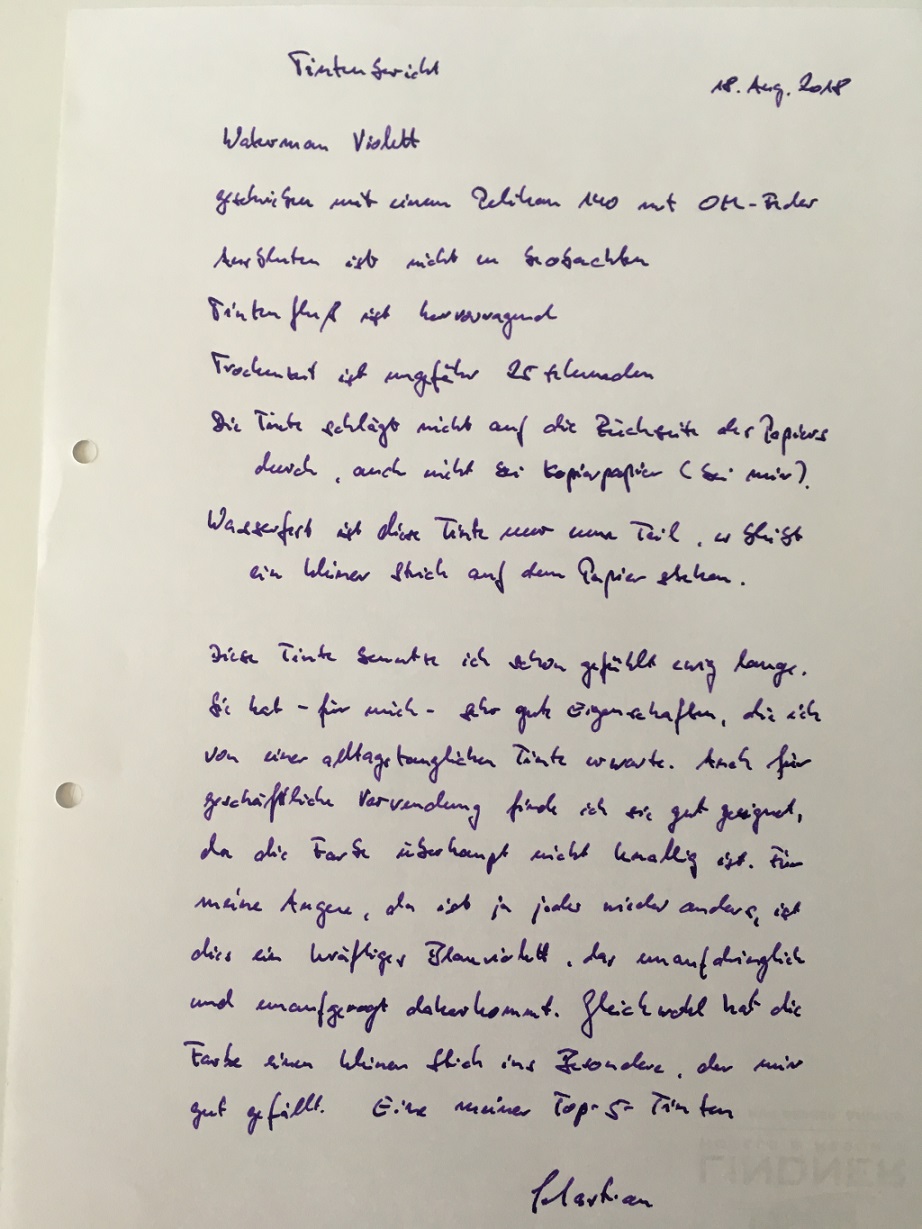 Tintenbericht
18. Aug. 2018
Waterman Violett
geschrieben mit einem Pelikan 140 mit OM-Feder
Ausbluten ist nicht zu beobachten
Tintenfluß ist hervorragend
Trockenzeit ist ungefähr 25 Sekunden
Die Tinte schlägt nicht auf die Rückseite des Papiers
durch, auch nicht bei Kopierpapier (bei mir).
Wasserfest ist diese Tinte nur zum Teil, es bleibt
ein kleiner Strich auf dem Papier stehen.
Diese Tinte benutze ich schon gefühlt ewig lange.
Sie hat - für mich - sehr gute Eigenschaften, die ich
von einer alltagstauglichen Tinte erwarte. Auch für
geschäftliche Verwendung finde ich sie gut geeignet,
da die Farbe überhaupt nicht knallig ist. Für
meine Augen, da ist ja jeder wieder anders, ist
dies ein kräftiges Blauviolett, das unaufdringlich
und unaufgeregt daherkommt. Gleichwohl hat die
Farbe einen kleinen Stich ins Besondere, der mir
gut gefällt. Eine meiner Top-5-Tinten
Sebastian
LINDNER